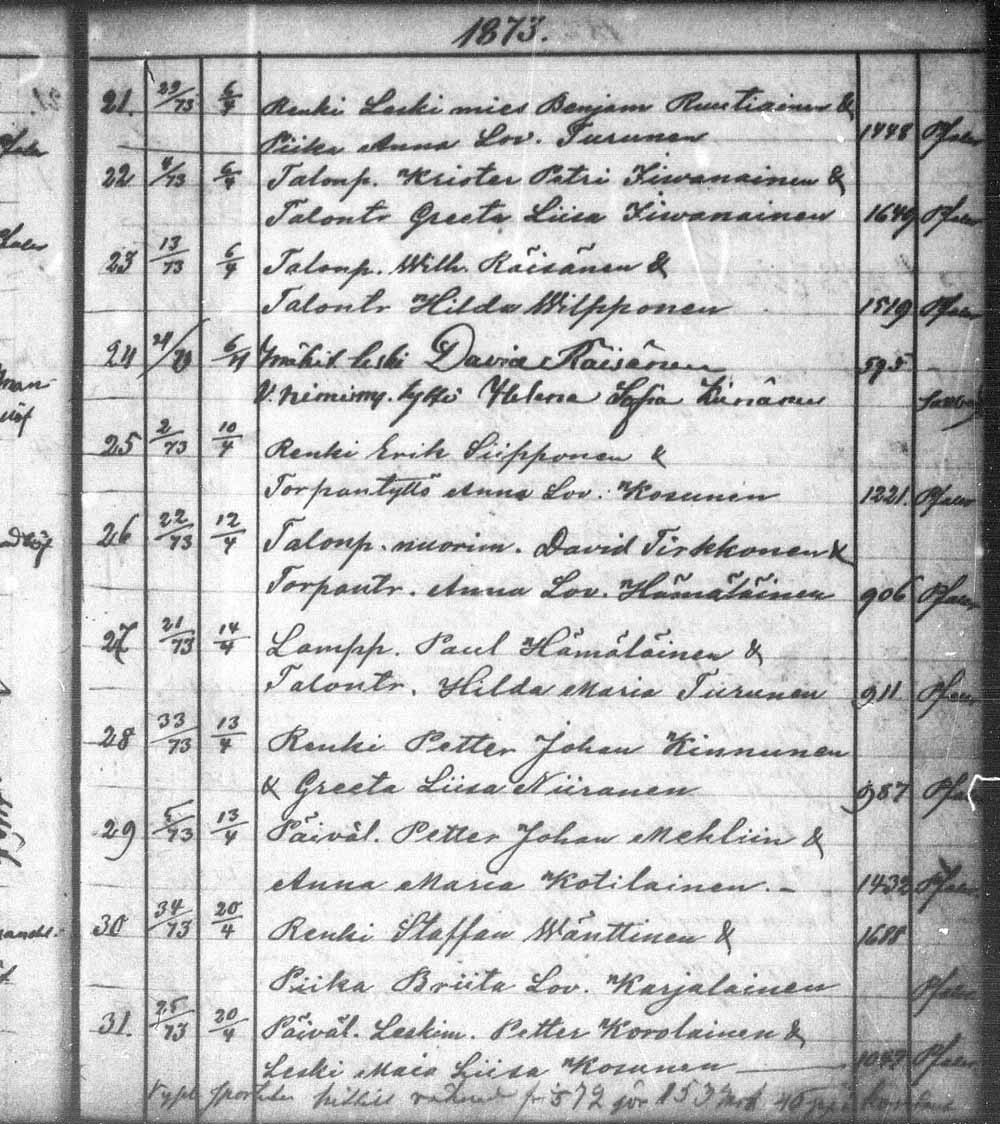 1873.
21. 29/73 6/4 Renki Leski mies Benjam Ruutiainen &
Piika Anna Lov. Turunen 1448 Pfaler
22 4/73 6/4 Talonp. Krister Petri Kiwanainen &
Talontr Greeta Liisa Kiwanainen 1649 Pfaler
23 13/73 6/4 Talonp. Wilh. Räisänen &
Talontr Hilda Wilpponen 1519 Pfaler
24 6/4 leski David Räisänen 595
tyttö Helena Sofia
25 2/73 10/4 Renki Erik Siipponen &
Torpantyttö Anna Lov. Kosunen 1221. Pfaler
26 22/73 12/4 Talonp. nuorim. David Tirkkonen &
Torpantr. Anna Lov. Hämäläinen 906 Pfaler
27 21/73 14/4 Lampp. Paul Hämäläinen &
Talontr. Hilda Maria Turunen 911 Pfaler
28 33/73 13/4 Renki Petter Johan Kinnunen
& Greeta Liisa Niiranen 987 Pfaler
29 5/73 13/4 Päiväl. Petter Johan Mehliin &
Anna Maria Kotilainen. – 1432 Pfaler
30 34/73 20/4 Renki Staffan Wänttinen & 1688
Piika Briita Lov. Karjalainen Pfaler
31. 25/73 20/4 Päiväl. Leskim. Petter Korolainen &
Leski Maia Liisa Kosunen 1047 Pfaler
572 153